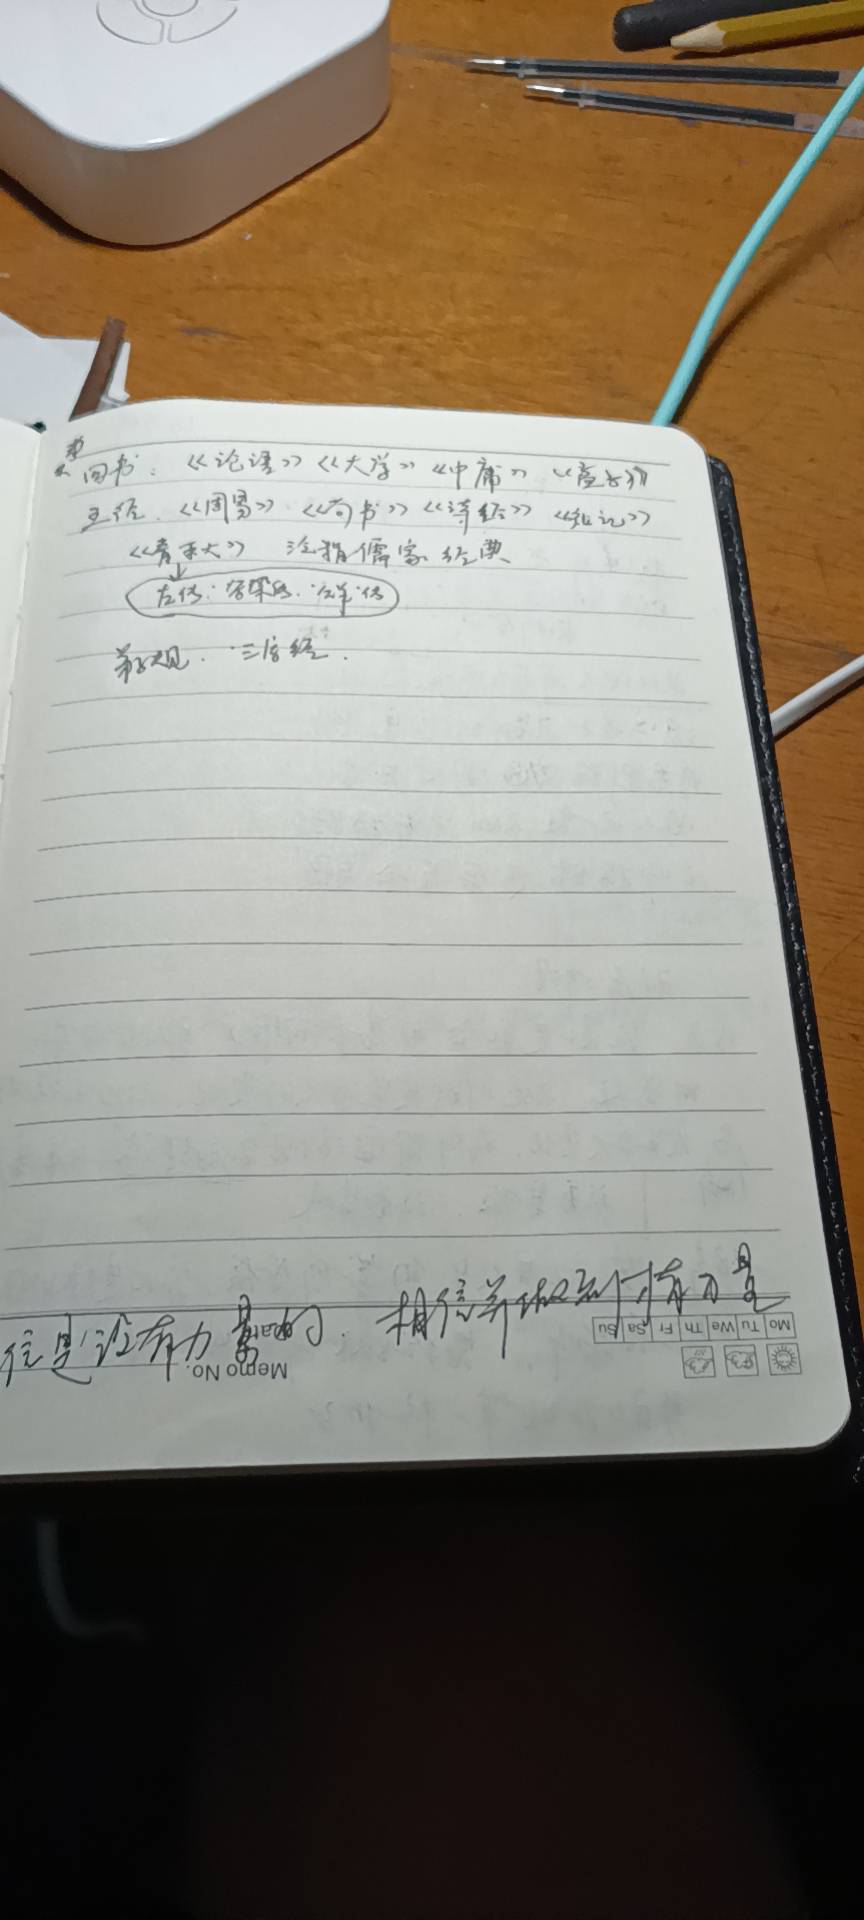 四书：《论语》《大学》《中庸》《孟子》
五经：《周易》《尚书》《诗经》《礼记》
《春秋》 泛指儒家经典
左传、谷梁传、公羊传
弟子规、三字经.
信是没有力量的. 相信并做到才有力量
Mo Tu We Th Fr Sa Su
Memo No.